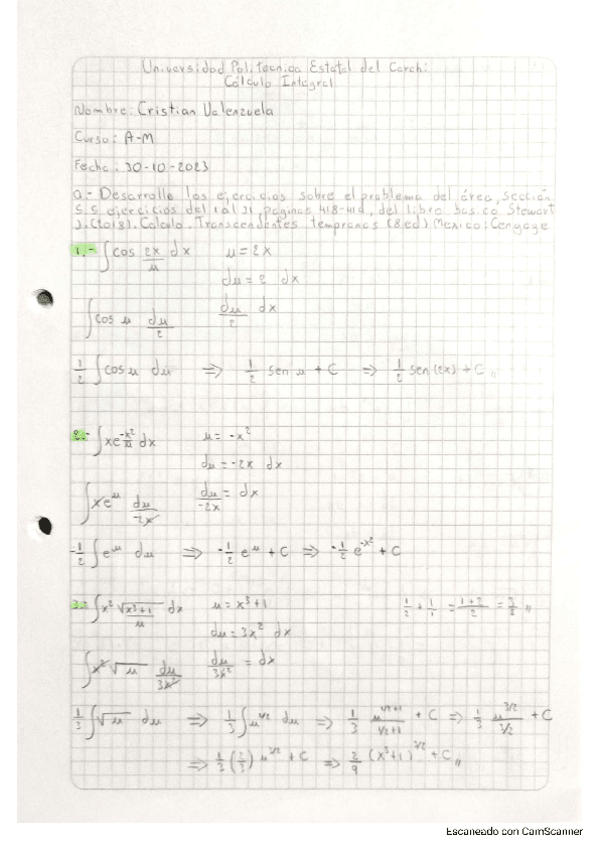 Universidad Politecnica Estatal del Carchi
Cálculo Integral
Nombre: Cristian Valenzuela
Curso: A-M
Fecha: 30-10-2023
a.- Desarrolle los ejercicios sobre el problema del área, sección
5.5 ejercicios del 1 al 31, paginas 418-419, del libro basico Stewart
J. (2018). Calculo. Transcendentes tempranas (8 ed) Mexico: Cengage
1.- ∫cos 2x/u dx u = 2x
du = 2 dx
∫cos u du/2 du/2 dx
1/2 ∫cos u du ⇒ 1/2 sen u + C ⇒ 1/2 sen (2x) + C //
2.- ∫xe^-x²/u dx u = -x²
du = -2x dx
∫xe^u du/-2x du/-2x = dx
-1/2 ∫e^u du ⇒ -1/2 e^u + C ⇒ -1/2 e^-x² + C
3.- ∫x² √x³+1/u dx u = x³+1 1/2 + 1/1 = 1+2/2 = 3/2 //
du = 3x² dx
∫x² √u du/3x² du/3x² = dx
1/3 ∫√u du ⇒ 1/3 ∫u^1/2 du ⇒ 1/3 u^1/2+1/1/2+1 + C ⇒ 1/3 u^3/2/3/2 + C
⇒ 1/3 (2/3) u^3/2 + C ⇒ 2/9 (x³+1)^3/2 + C //
Escaneado con CamScanner